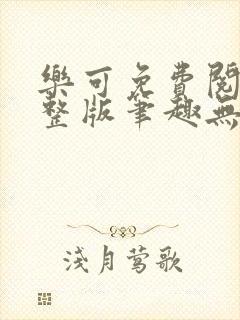 樂可免費閱
整版筆趣無
淺月莺歌